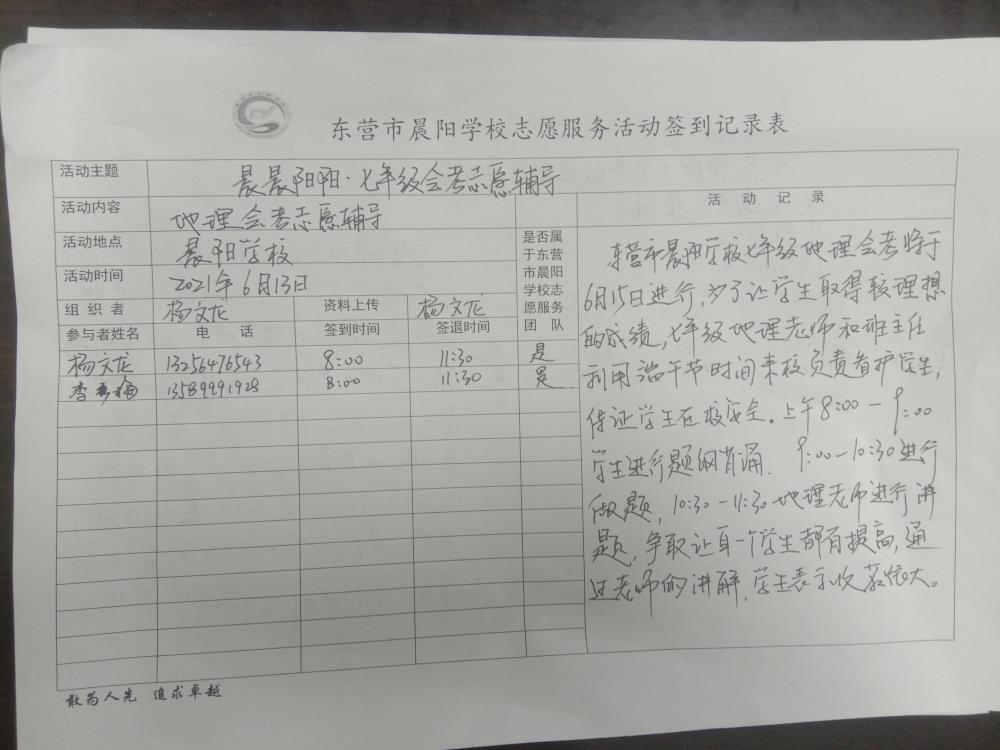 东营市晨阳学校志愿服务活动签到记录表
活动主题 晨晨阳阳·七年级会考志愿辅导
活动内容 地理会考志愿辅导
活动地点 晨阳学校
活动时间 2021年6月13日
组织者 杨文龙 资料上传 杨文龙
参与者姓名 电话 签到时间 签退时间
是否属
于东营
市晨阳
学校志
愿服务
团队
杨文龙 13256476543 8:00 11:30 是
李 梅 13589991928 8:00 11:30 是
活动记录
东营市晨阳学校七年级地理会考将于
6月15日进行,为了让学生取得较理想
的成绩,七年级地理老师和班主任
利用端午节时间来校负责看护学生,
保证学生在校安全。上午8:00-9:00
学生进行题纲背诵. 9:00-10:30进行
做题,10:30-11:30地理老师进行讲
题,争取让每一个学生都有提高,通
过老师的讲解,学生表示收获很大。
敢为人先 追求卓越